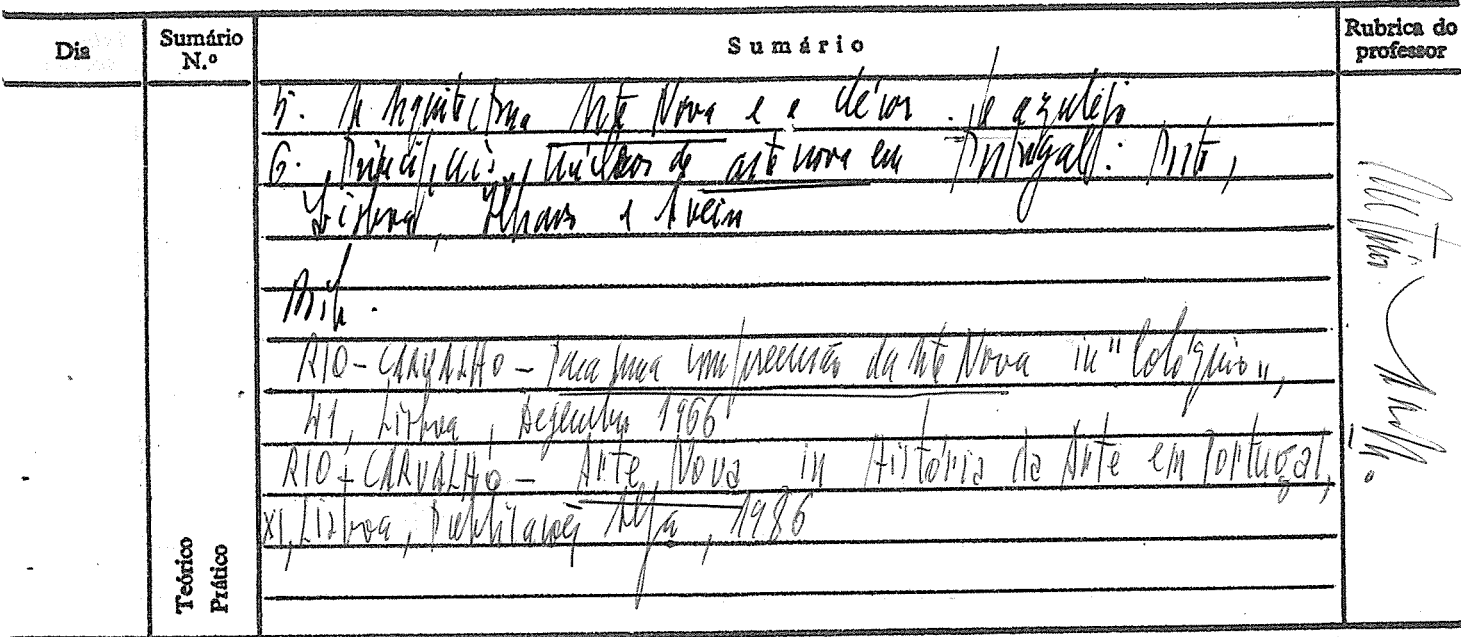 Dia
Sumário N.º
Sumário
Rubrica do professor
5. A Arquitectura Arte Nova e a décor de azulejo
6. Principais núcleos de arte nova em Portugal: Porto,
Lisboa, Ílhavo e Aveiro
Bib.
RIO-CARVALHO - Para uma compreensão da Arte Nova in "Colóquio",
41, Lisboa, Dezembro 1966
RIO-CARVALHO - Arte Nova in História da Arte em Portugal,
XI, Lisboa, Publicações Alfa, 1986
Teórico
Prático